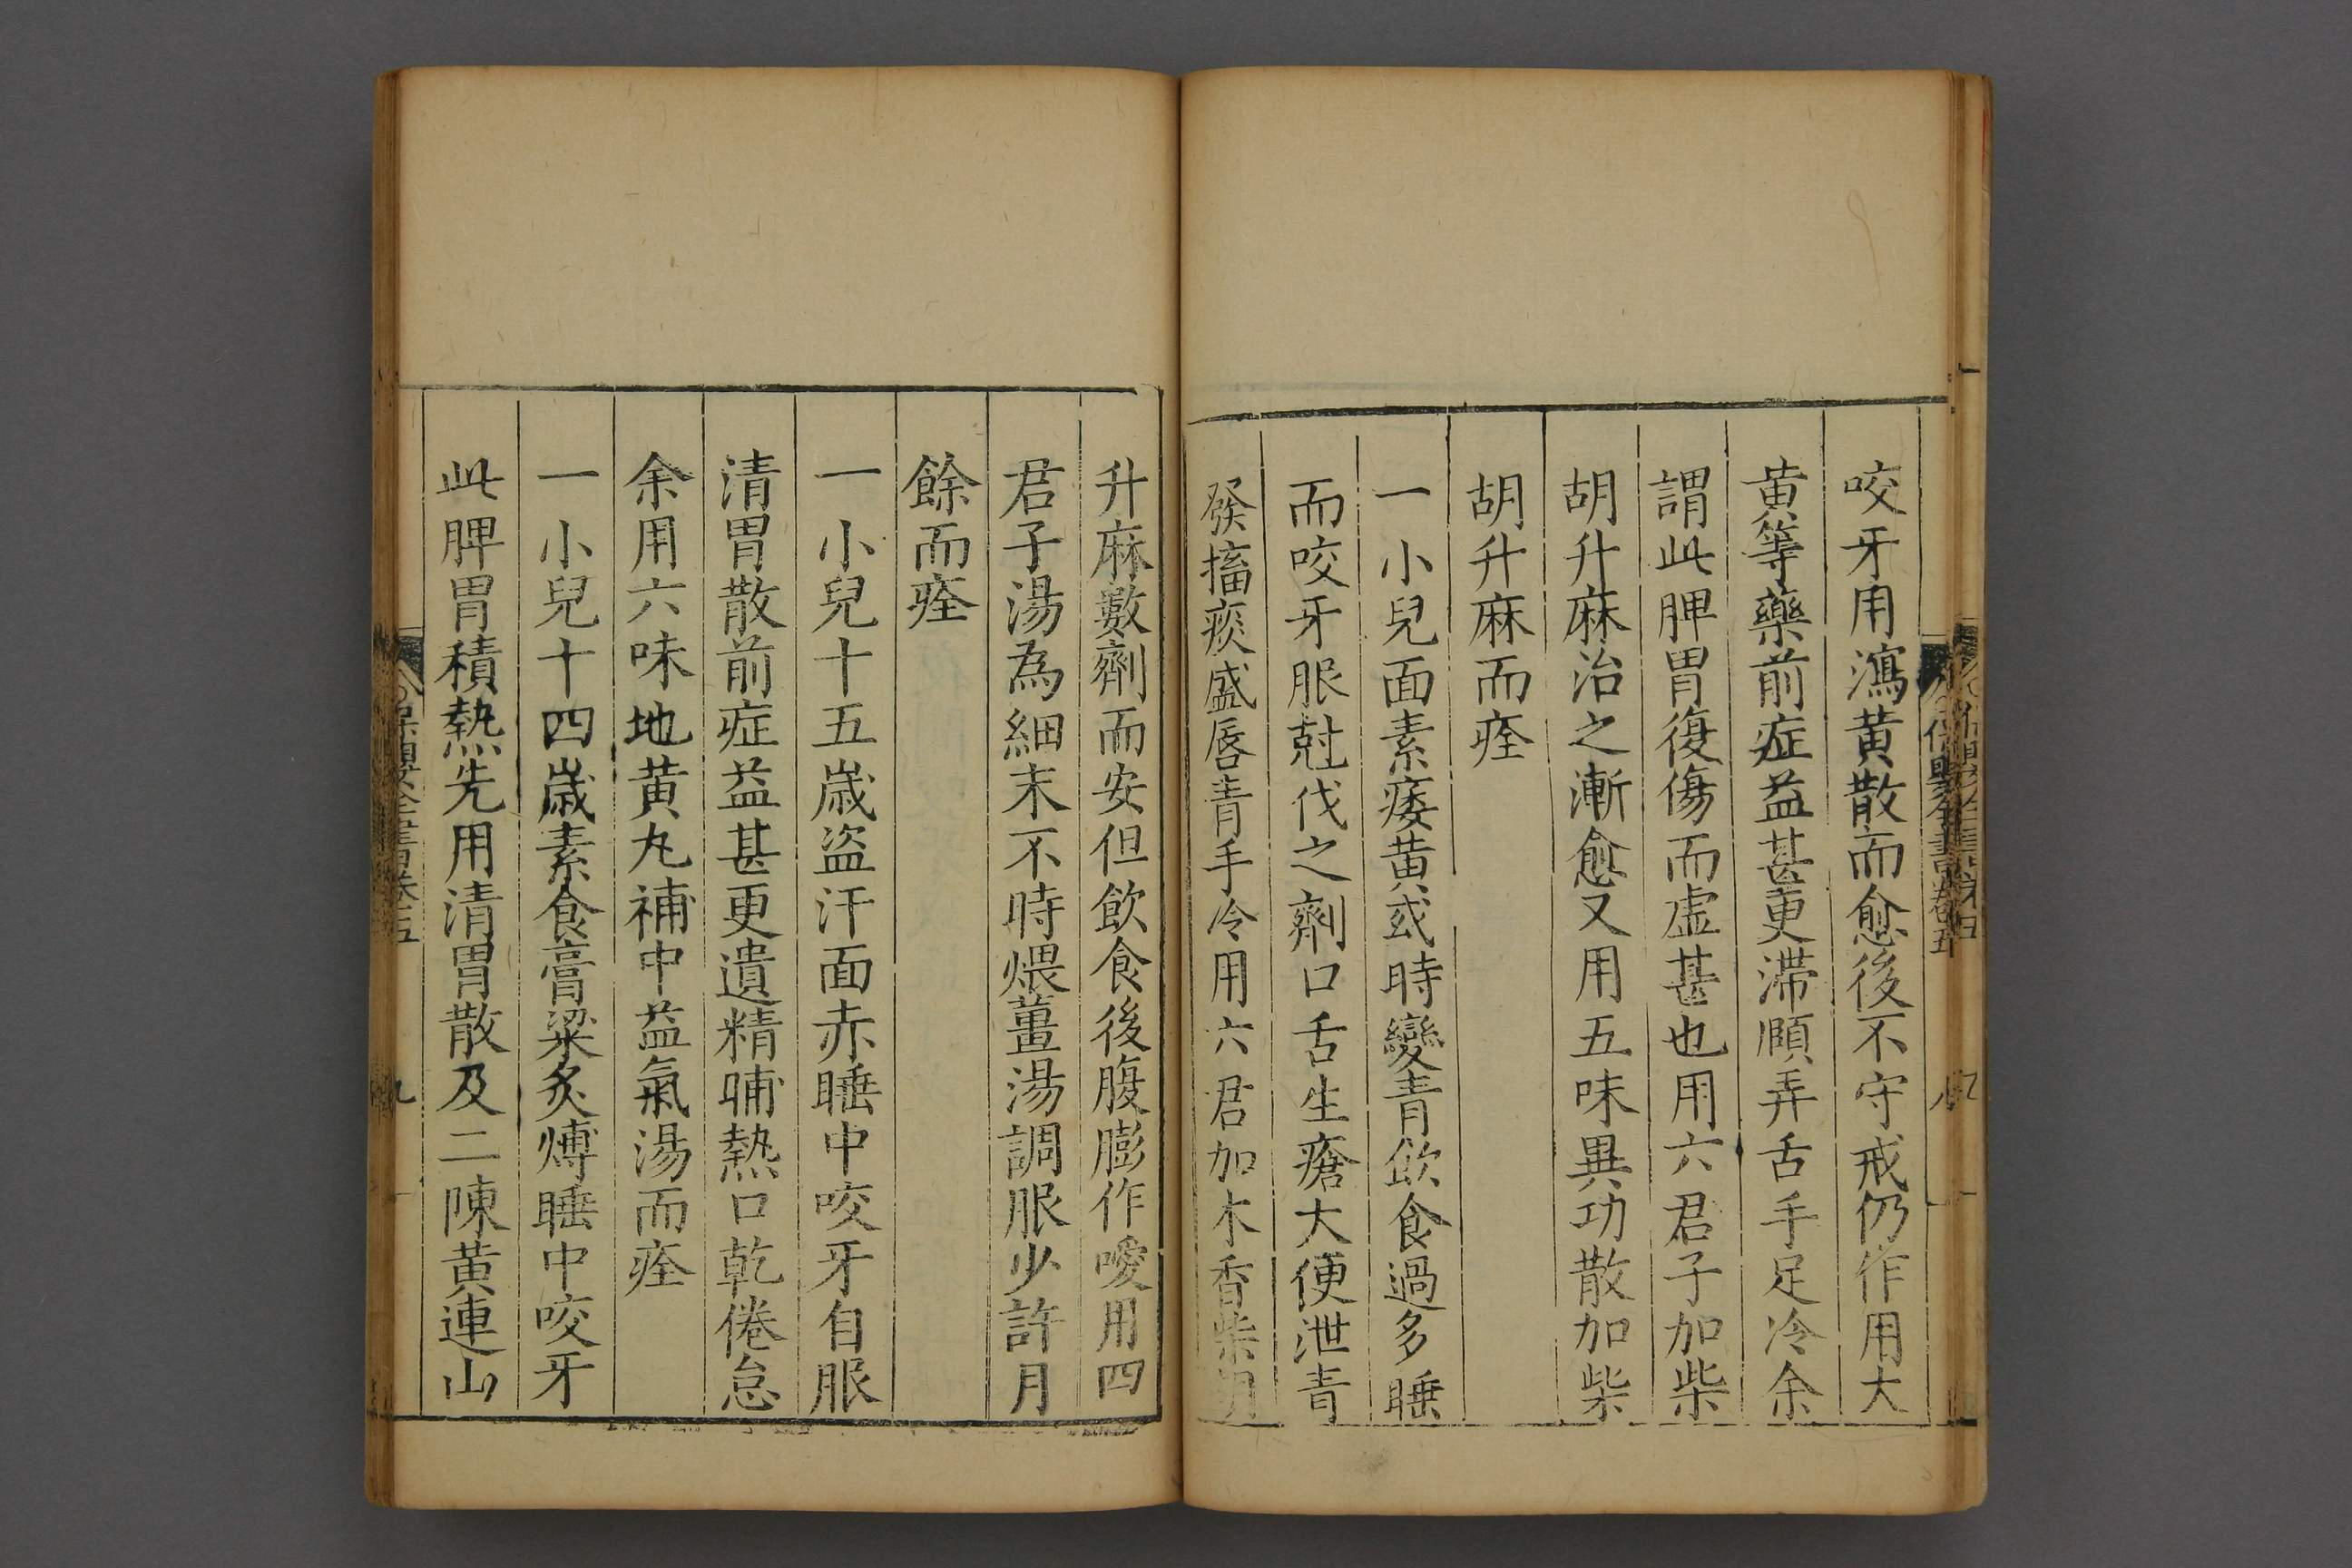 咬牙用瀉黄散而愈後不守戒仍作用大
黄等藥前症益甚更滯頥弄舌手足冷余
謂此脾胃復傷而虚甚也用六君子加柴
胡升麻治之漸愈又用五味異功散加柴
胡升麻而痊
一小兒面素痿黄或時變青飲食過多睡
而咬牙服尅伐之劑口舌生瘡大便泄青
發搐痰盛唇青手冷用六君加木香柴胡
升麻數劑而安但飲食後腹膨作噯用四
君子湯為細末不時煨薑湯調服少許月
餘而痊
一小兒十五歲盜汗面赤睡中咬牙自服
清胃散前症益甚更遺精晡熱口乾倦怠
余用六味地黄丸補中益氣湯而痊
一小兒十四歲素食膏粱炙煿睡中咬牙
此脾胃積熱先用清胃散及二陳黄連山
保嬰全書卷五
九